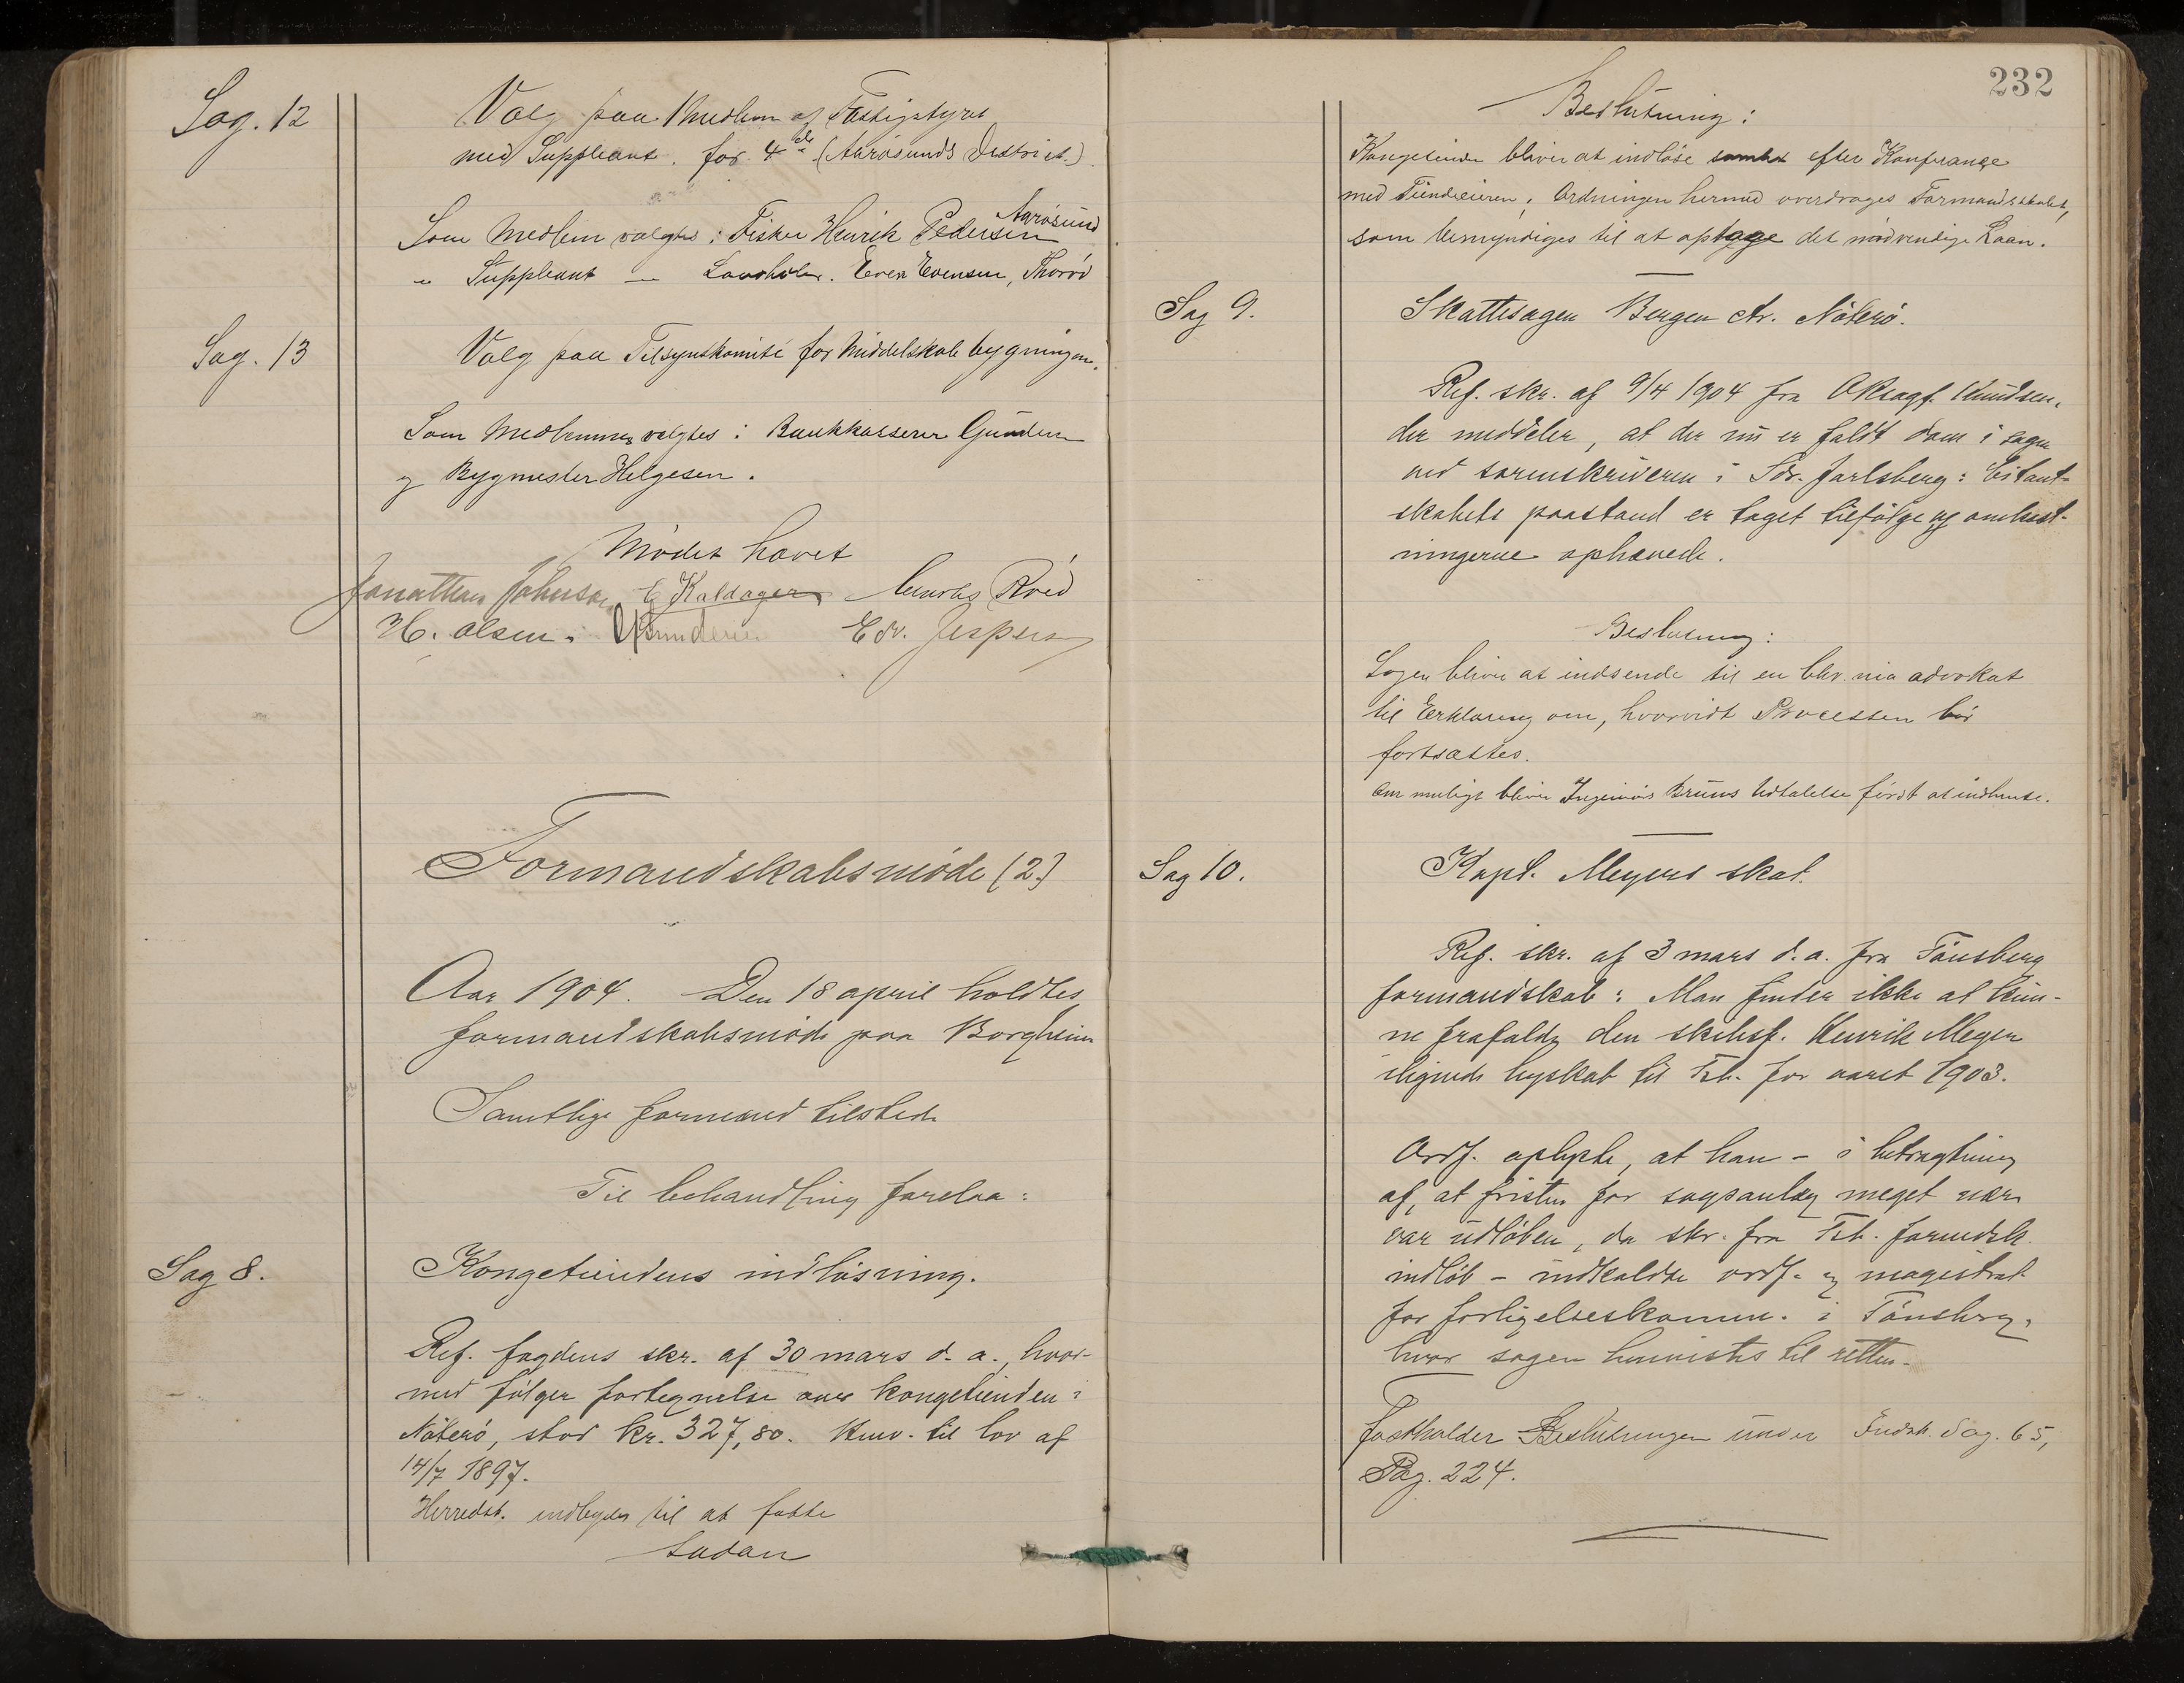 Sag. 12
Valg paa 1 Medlem af Fattigstyret
med Suppleant. for 4de (Aarøsunds District.)
Som Medlem valgtes: Fisker Henrik Pedersen Aarøsund
" Suppleant — Even Evensen, Thorød
Sag. 13
Valg paa Tilsynskomité for Middelskolebygningen.
Som Medlemmer valgtes: Bankkasserer Gundersen
og Bygmester Helgesen.
Mødet hævet
Jonathan Johnsen Kaldager Røed
H. Olsen. Gundersen Edv. Jespersen
Formandskabsmøde (2)
Aar 1904. Den 18 april holdtes
formandskabsmøde paa Borgheim
Samtlige formænd tilstede
Til behandling forelaa:
Sag 8.
Kongetiendens indløsning.
Ref. fogdens skr. af 30 mars d. a., hvor-
med følger fortegnelse over kongetienden i
Nøterø, stor kr. 327,80. Henv. til lov af
14/7 1897.
Herredst. indbydes til at fatte
saadan
232
Beslutning:
Kongetiende bliver at indløse samlet efter Konferanse
med Tiendeeieren; Ordningen hermed overdrages Formandskabet,
som bemyndiges til at optage det nødvendige Laan.
Sag 9.
Skattesagen Bergen ctr. Nøterø.
Ref. skr. af 9/4 1904 fra Oksagf. Knudsen,
der meddeler, at der nu er faldt dom i sagen
ved sorenskriveren i Sdr. Jarlsberg: Citant-
skabets paastand er taget tilfølge og omkost-
ningerne ophævede.
Beslutning:
Sagen bliver at indsende til en advokat
til Erklæring om, hvorvidt Processen bør
fortsættes.
Om muligt bliver Ingeniør Bruuns Udtalelse først at indhente.
Sag 10.
Kapt. Meyers skat.
Ref. skr. af 3 mars d. a. fra Tønsberg
formandskab: Man finder ikke at kun-
ne frafalde den skibsf. Henrik Meyer
ilignede byskat til Tsb. for aaret 1903.
Ordf. oplyste, at han – i betragtning
af, at fristen for sagsanlæg meget nær
var udløben, da skr. fra Tsb. formdsk.
indløb – indkaldte ordf. og magistrat
for forligelseskomm. i Tønsberg,
hvor sagen henvistes til retten.
Fastholder Beslutningen under Sag. 65,
Pag. 224.